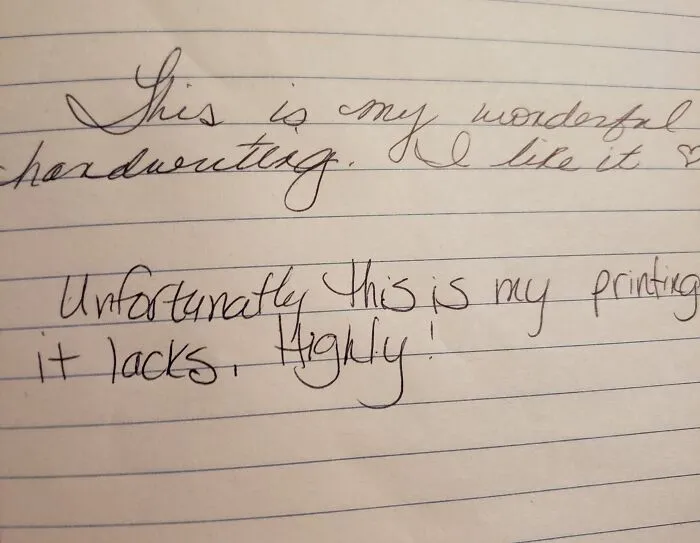 This is my wonderful
handwriting. I like it ♡
Unfortunatly this is my printing
it lacks. Highly!